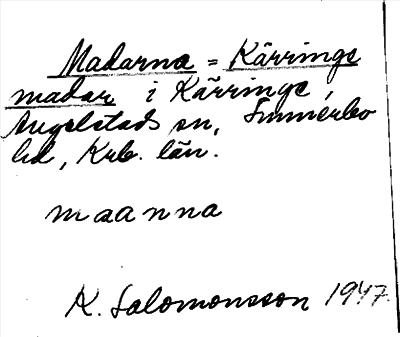 Madarna = Kärringe
madar i Kärringe,
Angelstads sn, Sunnerbo
hd, Krb. län.
maanna
K. Salomonsson 1947.